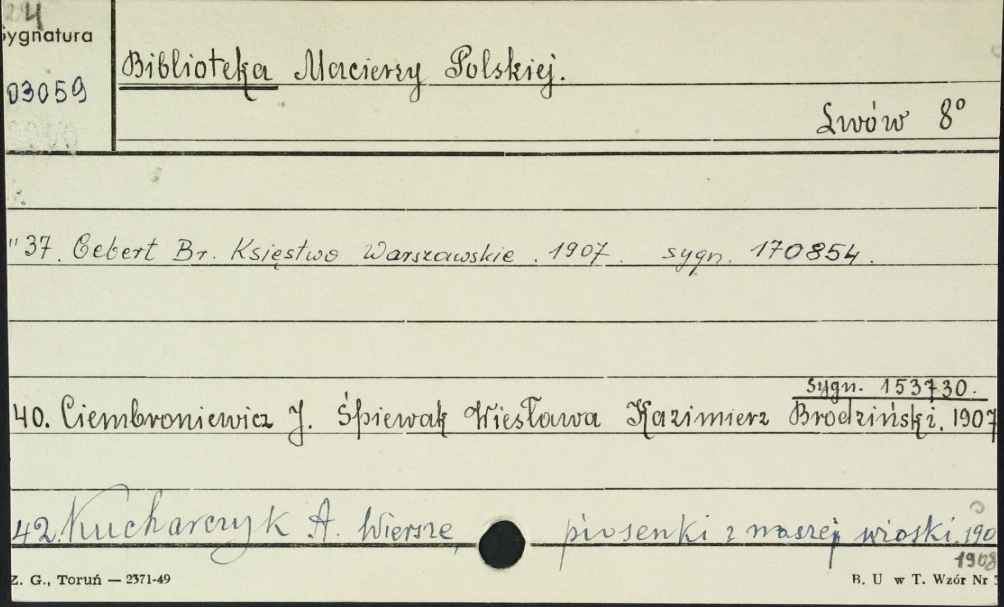 24
Sygnatura
03059
Biblioteka Macierzy Polskiej.
Lwów 8°
" 37. Gebert Br. Księstwo Warszawskie. 1907. sygn. 170854.
sygn. 153730.
40. Ciembroniewicz J. Śpiewak Wiesława Kazimierz Brodziński. 1907
42. Kucharczyk A. Wiersze, piosenki z naszej wioski. 190
1908
Z. G., Toruń — 2371-49
B. U w T. Wzór Nr